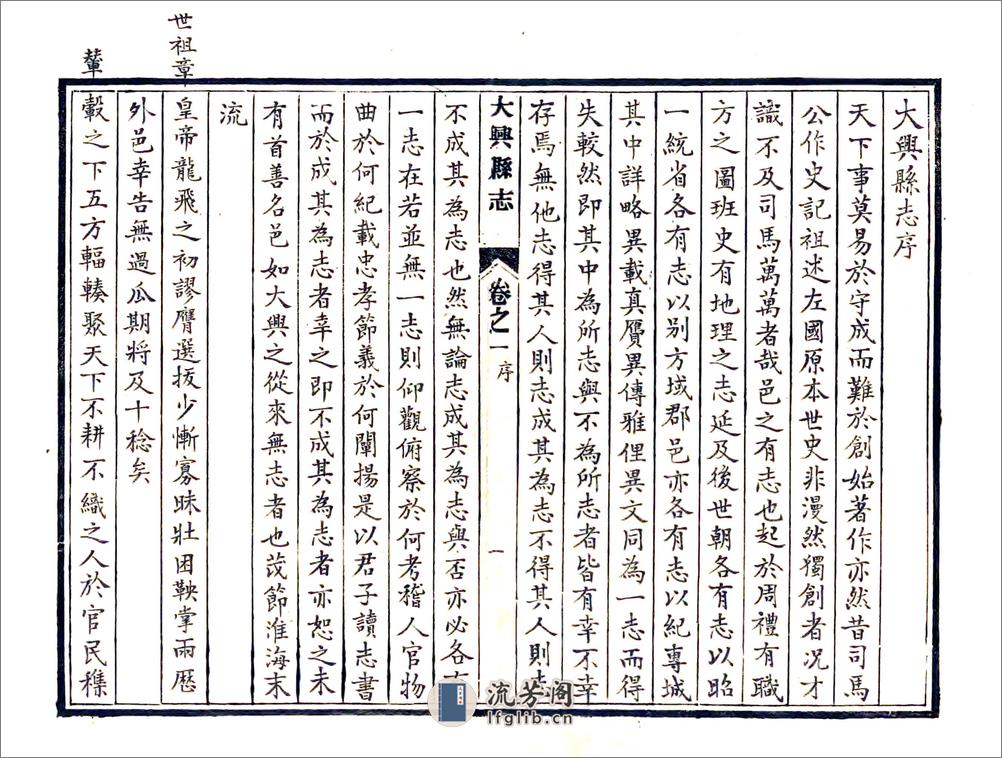 大興縣志序
天下事莫易於守成而難於創始著作亦然昔司馬
公作史記祖述左國原本世史非漫然獨創者况才
識不及司馬萬萬者哉邑之有志也起於周禮有職
方之圖班史有地理之志延及後世朝各有志以昭
一統省各有志以别方域郡邑亦各有志以紀專城
其中詳略異載真贋異傳雅俚異文同為一志而得
失較然即其中為所志與不為所志者皆有幸不幸
存焉無他志得其人則志成其為志不得其人則志
大興縣志 卷之一 序 一
不成其為志也然無論志成其為志與否亦必各有
一志在若並無一志則仰觀俯察於何考稽人官物
曲於何紀載忠孝節義於何闡揚是以君子讀志書
而於成其為志者幸之即不成其為志者亦恕之未
有首善名邑如大興之從來無志者也茂節淮海末
流
世祖章皇帝龍飛之初謬膺選拔少慚寡昧壯困鞅掌兩歷
外邑幸告無過瓜期將及十稔矣
輦轂之下五方輻輳聚天下不耕不織之人於官民
流芳阁
lfglib.cn